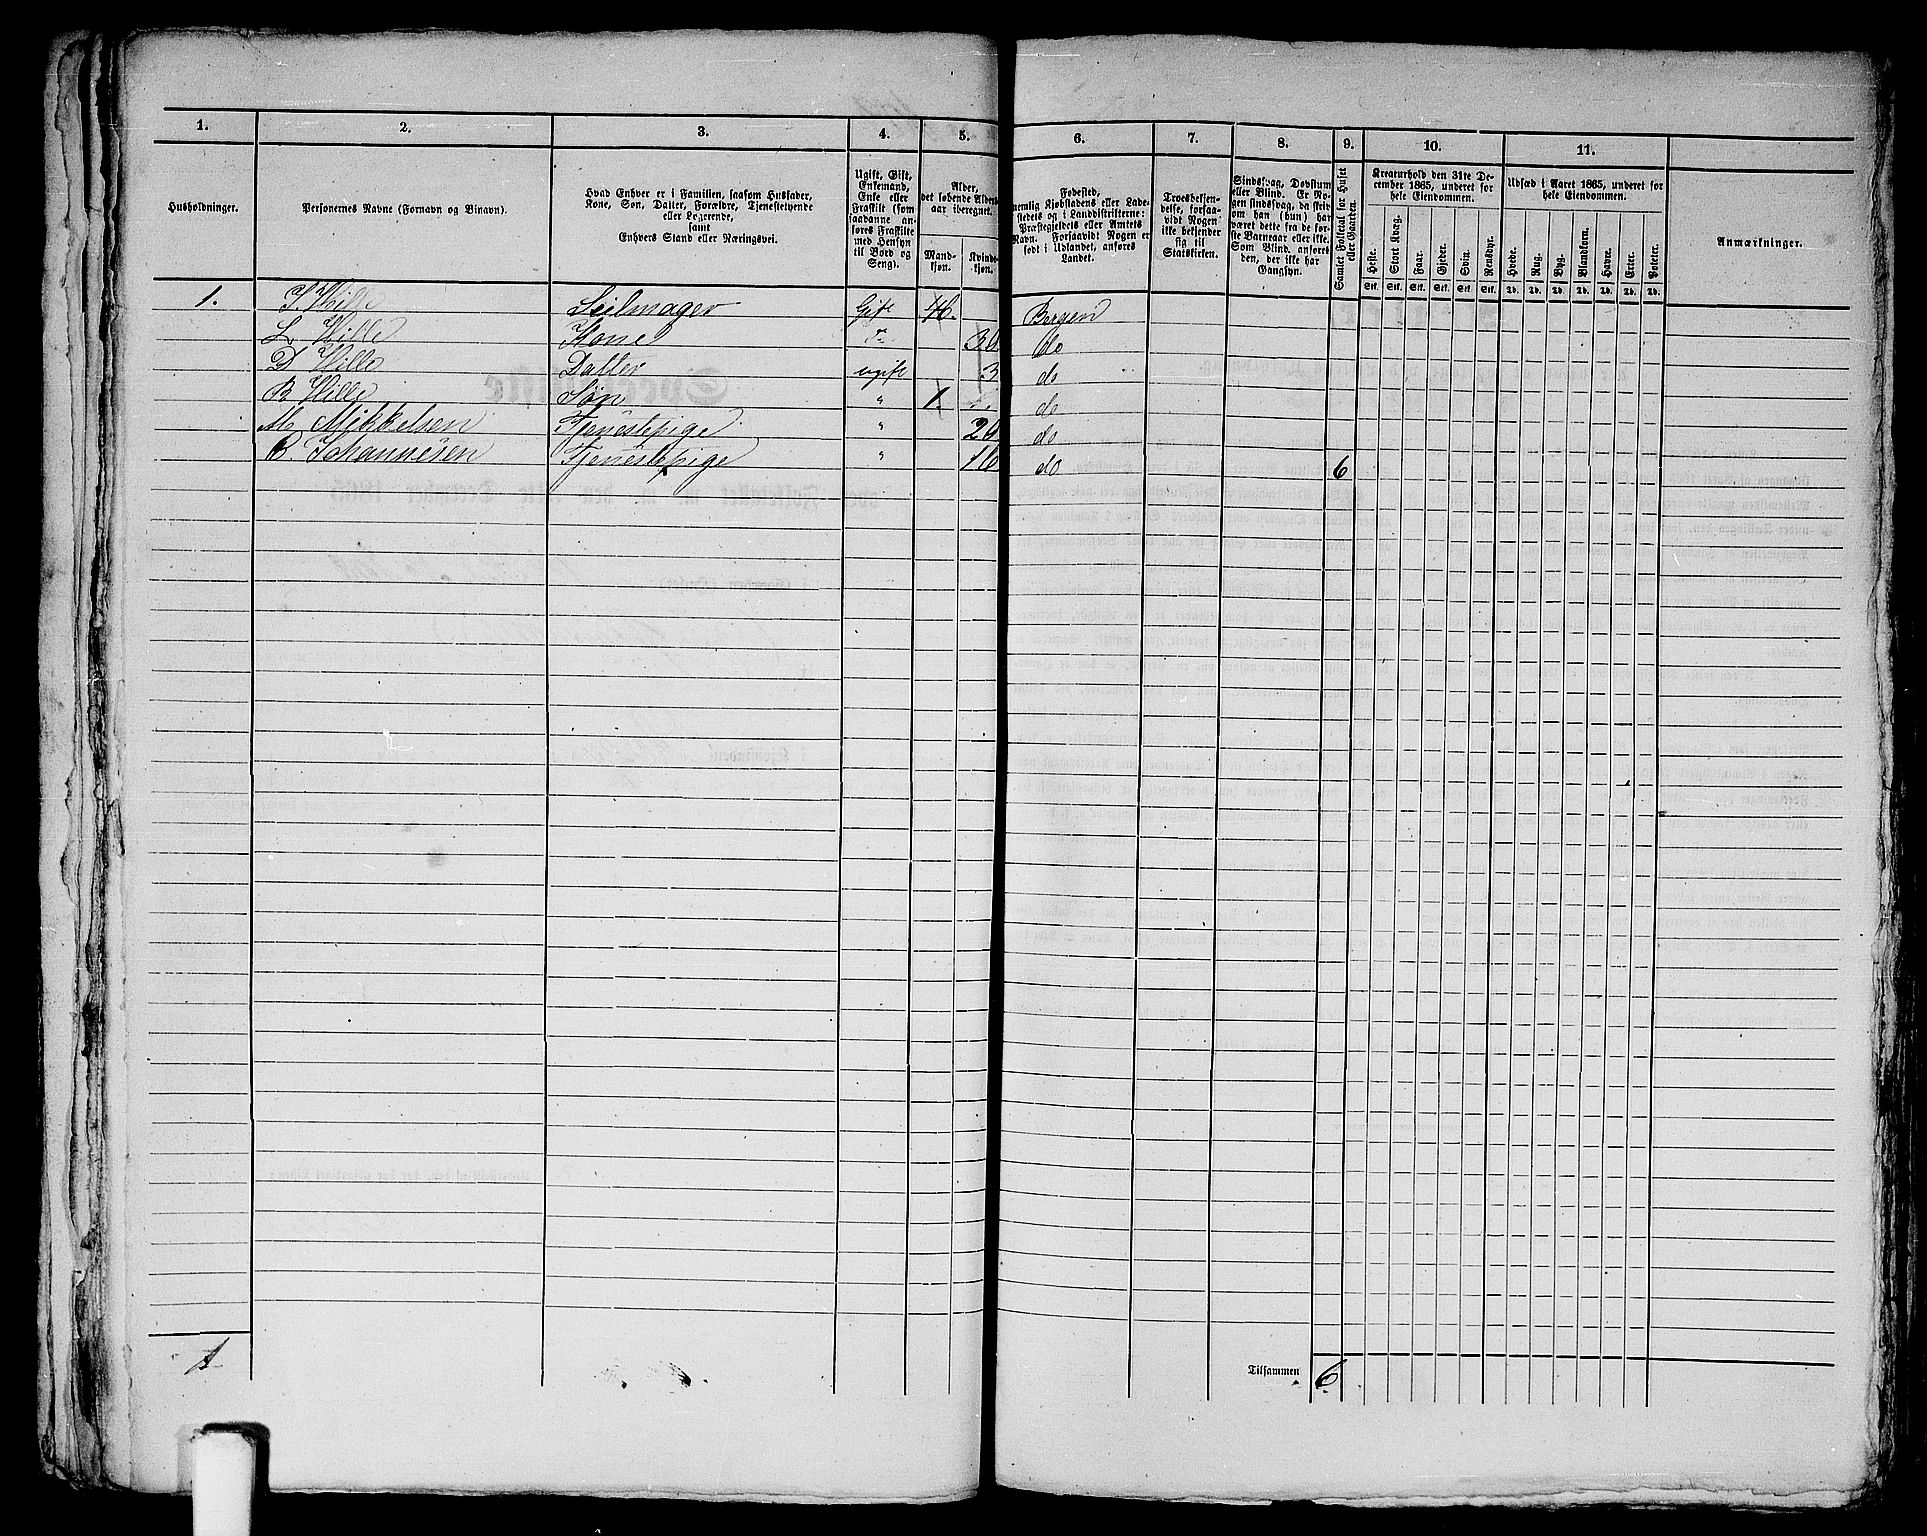 1. 2. 3. 4. 5. 6. 7. 8. 9. 10. 11.
Husholdninger.
Personernes Navne (Fornavn og Binavn).
Hvad Enhver er i Familien, saasom Husfader,
Kone, Søn, Datter, Forældre, Tjenestetyende
eller Logerende,
samt
Enhvers Stand eller Næringsvei.
Ugift, Gift,
Enkemand,
Enke eller
Fraskilt (som
saadanne an-
føres Fraskilte
med Hensyn
til Bord og
Seng).
Alder,
det løbende Alders-
aar iberegnet.
Mand-
kjøn.
Kvinde-
kjøn.
Fødested,
nemlig Kjøbstadens eller Lade-
stedets og i Landdistrikterne:
Præstegjeldets eller Amtets
Navn. Forsaavidt Nogen er
født i Udlandet, anføres
Landet.
Troesbekjen-
delse, forsaa-
vidt Nogen
ikke bekjender
sig til
Statskirken.
Sindssvag, Døvstum
eller Blind. Er No-
gen sindssvag, da skrives
om han (hun) har
været dette fra de før-
ste Barneaar eller ikke.
Som Blind anføres
den, der ikke har
Gangsyn.
Samlet Folketal for Huset
eller Gaarden.
Kreaturhold den 31te De-
cember 1865, underet for
hele Eiendommen.
Heste.
Stort Kvæg.
Faar.
Gjeder.
Svin.
Rensdyr.
Stk. Stk. Stk. Stk. Stk. Stk.
Udsæd i Aaret 1865, underet for
hele Eiendommen.
Hvede.
Rug.
Byg.
Blandkorn.
Havre.
Erter.
Poteter.
Td. Td. Td. Td. Td. Td. Td.
Anmærkninger.
1. J. Wille Seilmager Gift 46. Bergen
L Wille Kone 36 do
D Wille Datter ugift 3 do
R Wille Søn " 1. do
M. Mikkelsen Tjenestepige " 26 do
B. Johannesen Tjenestepige " 16 do 6
1 Tilsammen 6